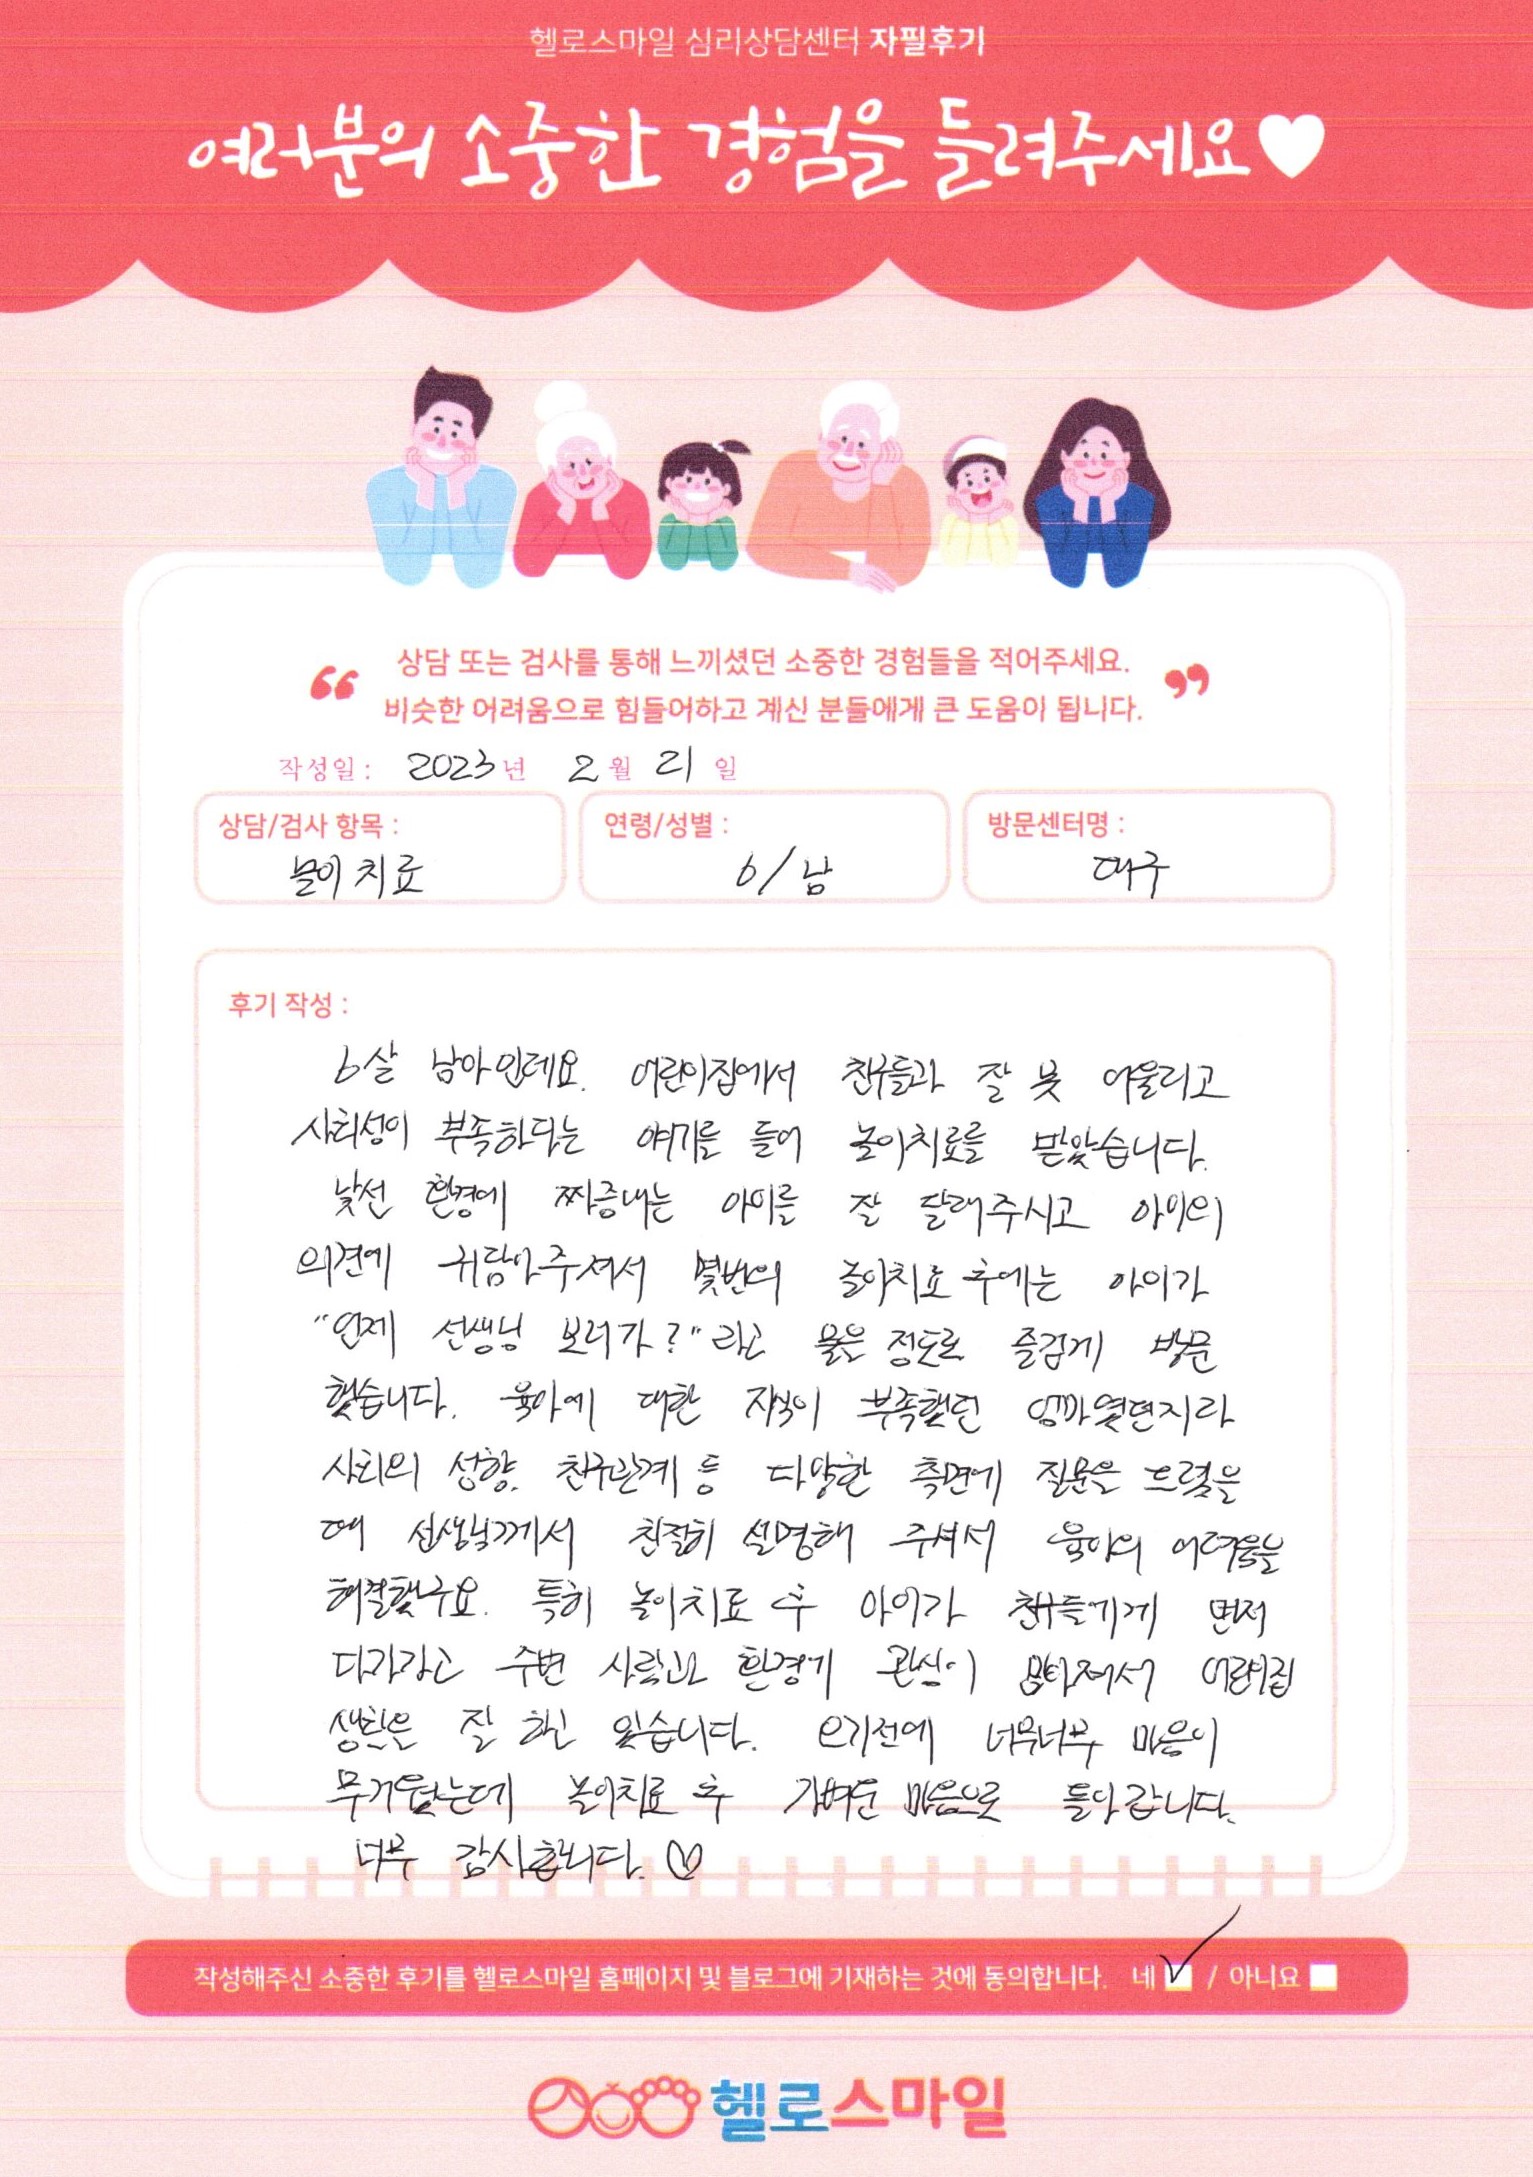 헬로스마일 심리상담센터 자필후기
여러분의 소중한 경험을 들려주세요
상담 또는 검사를 통해 느끼셨던 소중한 경험들을 적어주세요.
비슷한 어려움으로 힘들어하고 계신 분들에게 큰 도움이 됩니다.
작성일 : 2023 년 2 월 21 일
상담/검사 항목 : 연령/성별 : 방문센터명 :
놀이치료 6/남 대구
후기 작성 :
6살 남아인데요. 어린이집에서 친구들과 잘 못 어울리고
사회성이 부족하다는 얘기를 들어 놀이치료를 받았습니다.
낯선 환경에 짜증내는 아이를 잘 달래주시고 아이의
의견에 귀담아주셔서 몇번의 놀이치료 후에는 아이가
"언제 선생님 보러가?"라고 물을 정도로 즐겁게 방문
했습니다. 육아에 대한 지식이 부족했던 엄마였던지라
사회의 성향, 친구관계 등 다양한 측면에 질문을 드렸을
때 선생님께서 친절히 설명해 주셔서 육아의 어려움을
해결했구요. 특히 놀이치료 후 아이가 친구들에게 먼저
다가가고 주변 사람과 환경에 관심이 많아져서 어린이집
생활을 잘 하고 있습니다. 오기전에 너무너무 마음이
무거웠는데 놀이치료 후 가벼운 마음으로 돌아갑니다.
너무 감사합니다. ♡
작성해주신 소중한 후기를 헬로스마일 홈페이지 및 블로그에 기재하는 것에 동의합니다. 네 ✓ / 아니요
헬로스마일